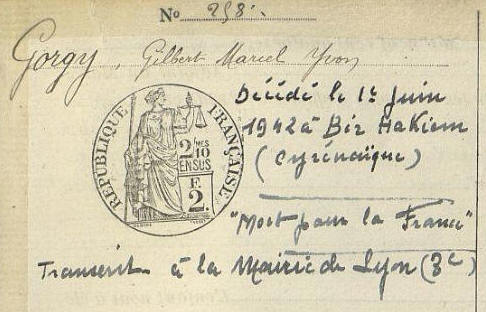 No 258.
Gorgy, Gilbert Marcel Yvon
Décédé le 1er Juin
1942 à Bir Hakiem
(Cyrénaïque)
RÉPUBLIQUE FRANÇAISE
2/10MES
EN SUS
F.
2.
"Mort pour la France"
Transcrit à la Mairie de Lyon (3e)